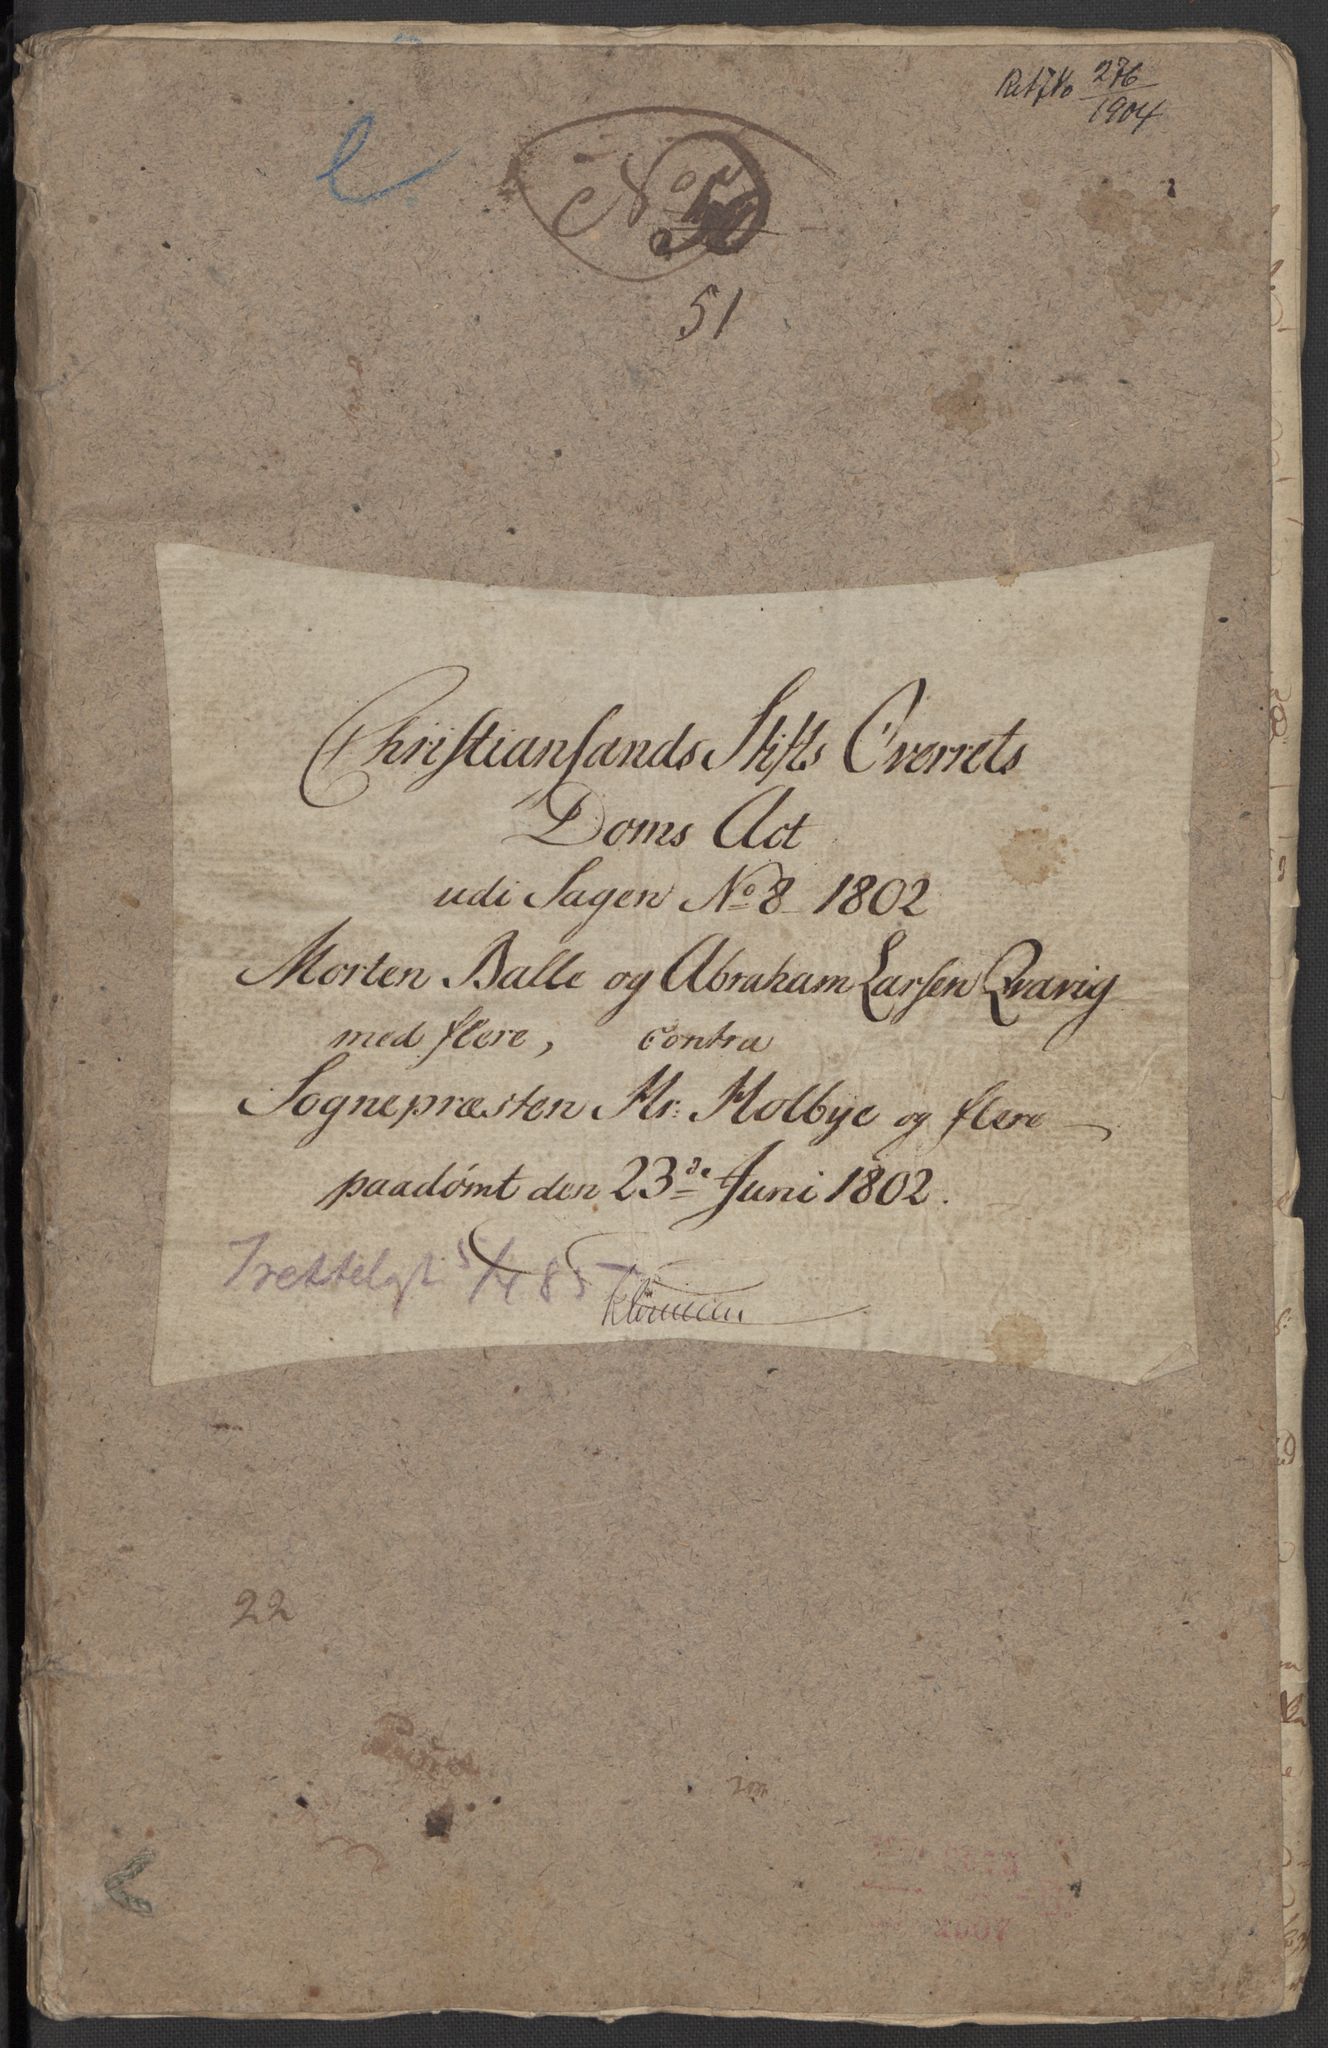 276
1904
No
51
Christiansands Stifts Overrets
Doms Act
udi Sagen No 8 1802
Morten Balle og Abraham Larsen Qvavig
med flere, contra
Sognepræsten Hr: Holbye og flere
paadømt den 23de Juni 1802.
22